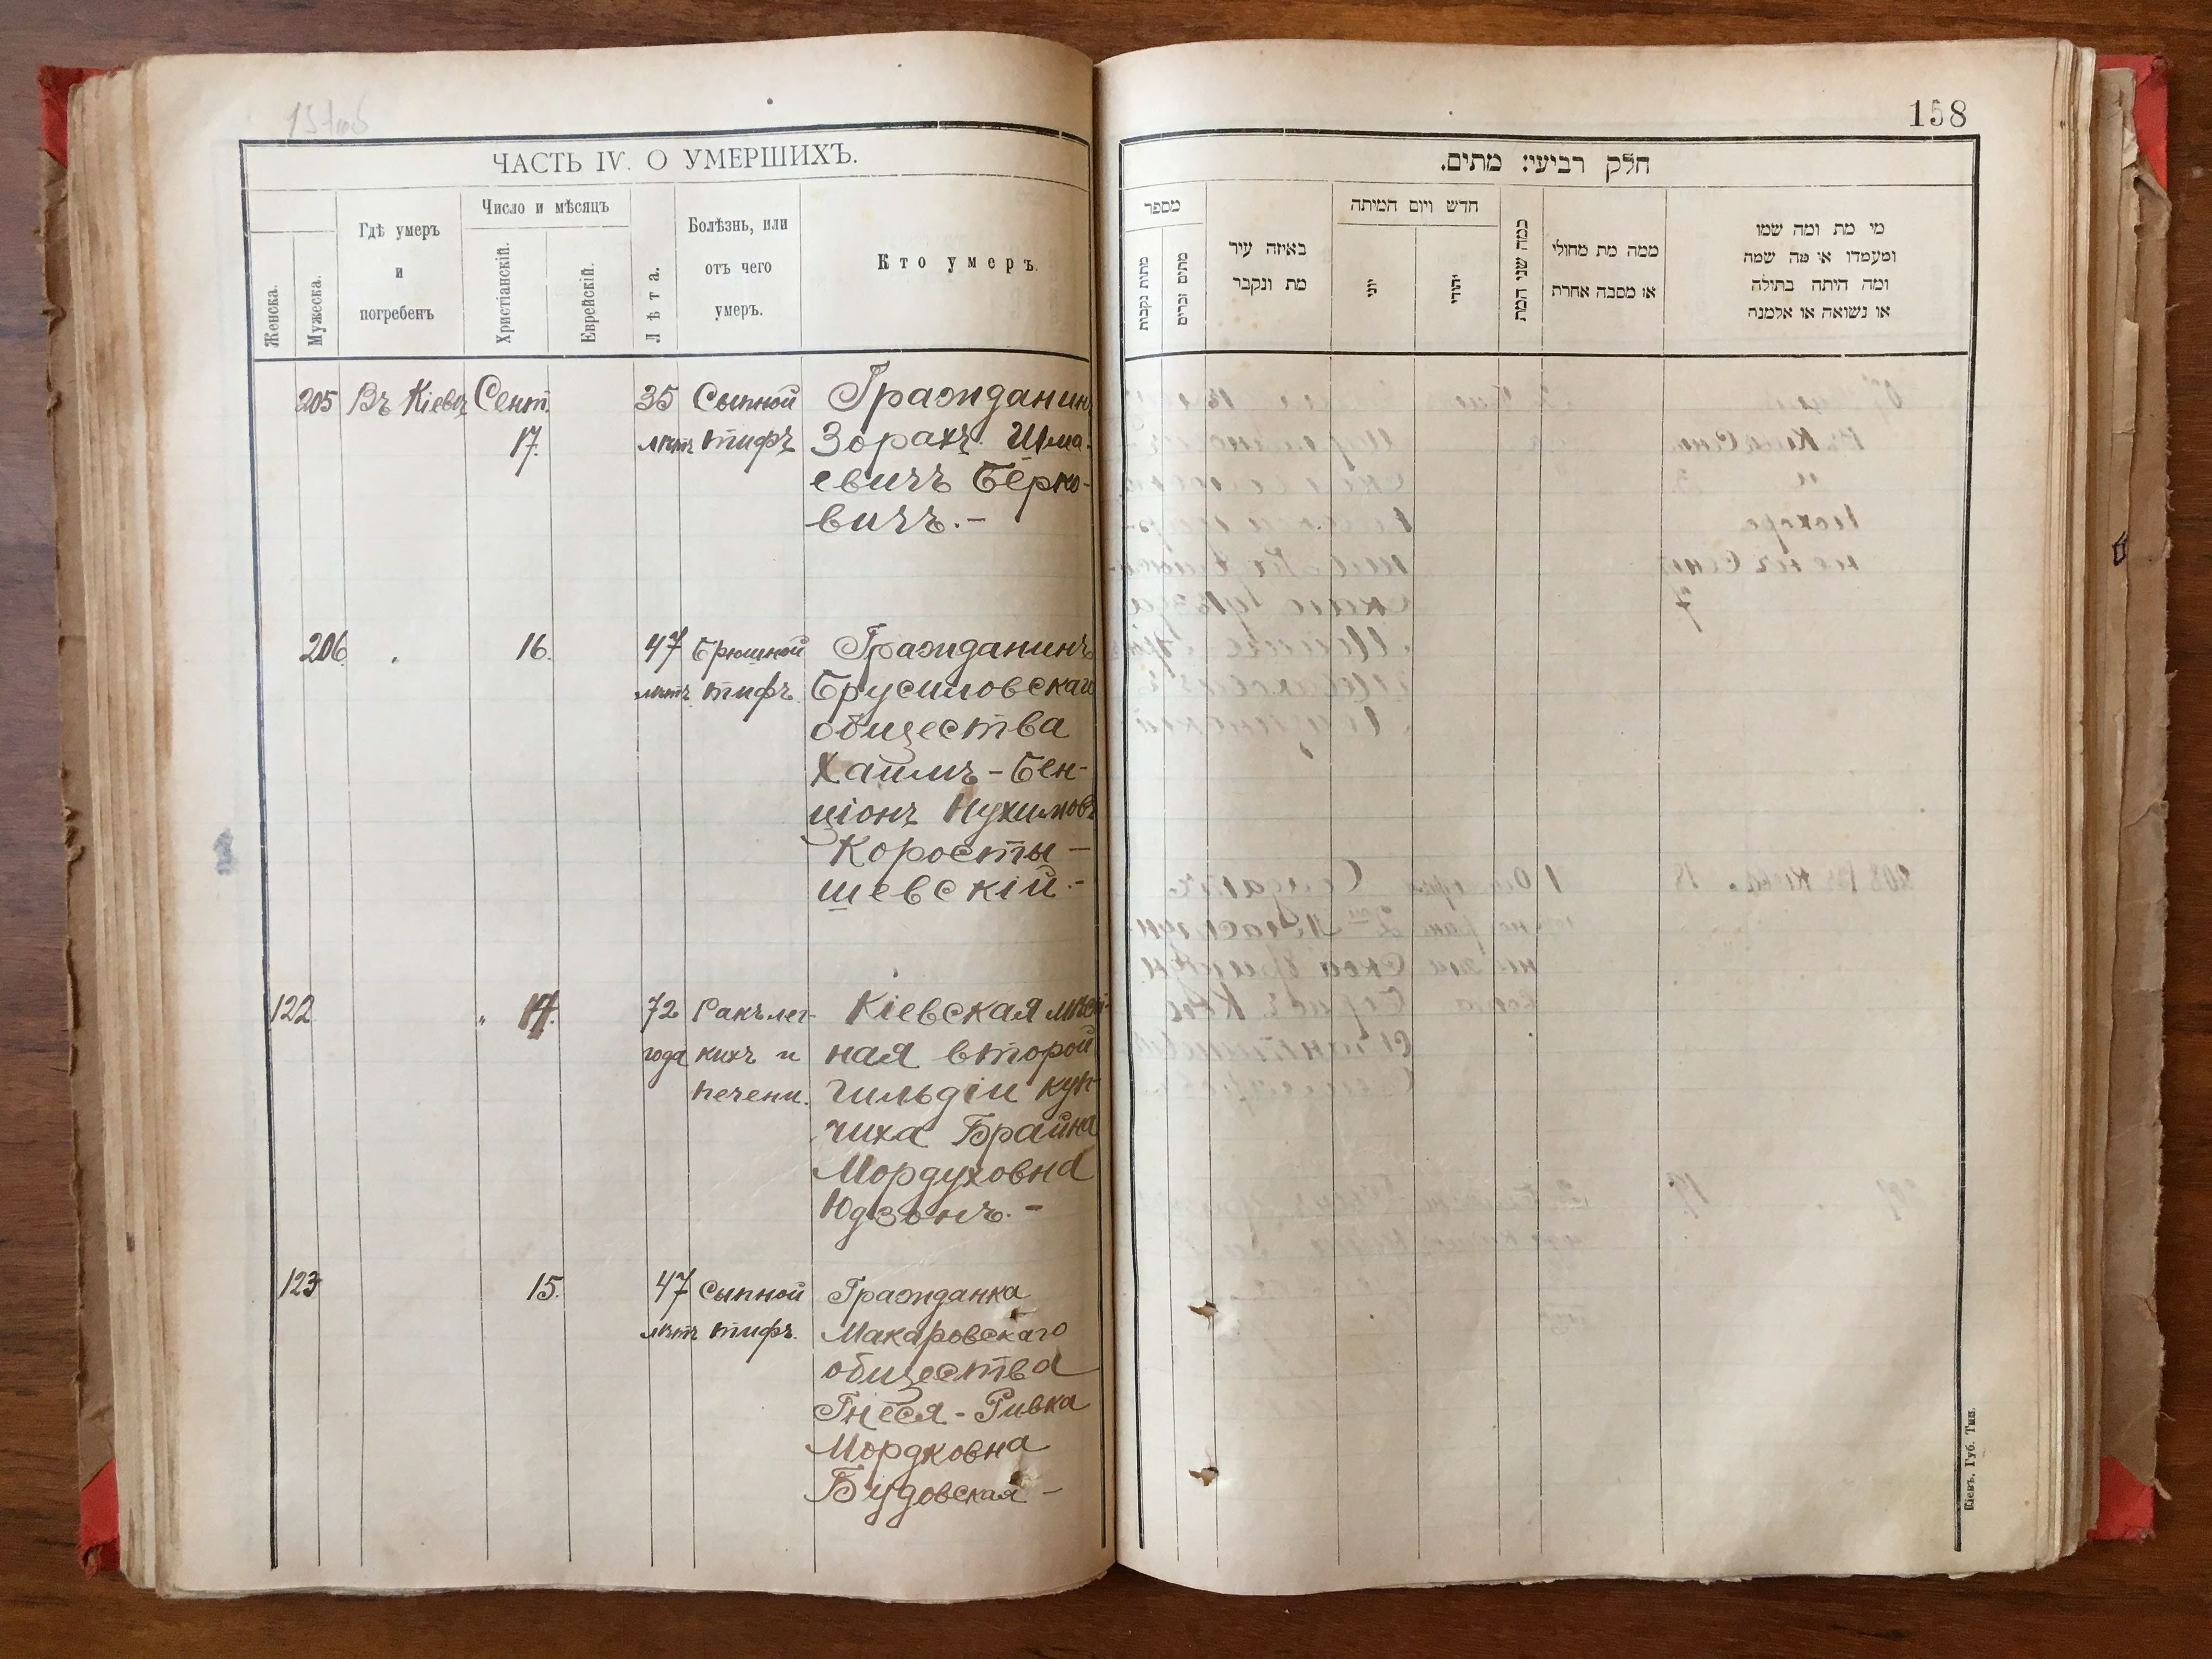 158
ЧАСТЬ IV. О УМЕРШИХЪ.
Женска.
Мужеска.
Гдѣ умеръ
и
погребенъ
Число и мѣсяцъ
Христіанскій.
Еврейскій.
Лѣта.
Болѣзнь, или
отъ чего
умеръ.
Кто умеръ.
205 Въ Кіевѣ Сент. 35 Сыпной Гражданинъ
17. лѣтъ тифъ Зорахъ Шма-
евичъ Берко-
вичъ.-
206. 16. 47 Брюшной Гражданинъ
лѣтъ тифъ. Брусиловскаго
общества
Хаимъ-Бен-
ціонъ Нухимовъ
Коросты-
шевскій.-
122 „ 72 Ракъ лег- Кіевская
года кихъ и ная второй
печени. гильдіи куп-
чиха Брайна
Мордуховна
Юдзонъ.-
123 15. 47 Сыпной Гражданка
лѣтъ тифъ. Макаровскаго
общества
Гнеся-Ривка
Мордковна
Будовская-
חלק רביעי: מתים.
מספר
מתות נקבות
מתים זכרים
באיזה עיר
מת ונקבר
חדש ויום המיתה
יוני
יהודי
כמה שני המת
ממה מת מחולי
או מסבה אחרת
מי מת ומה שמו
ומעמדו או מה שמה
ומה היתה בתולה
או נשואה או אלמנה
Кіевъ, Губ. Тип.